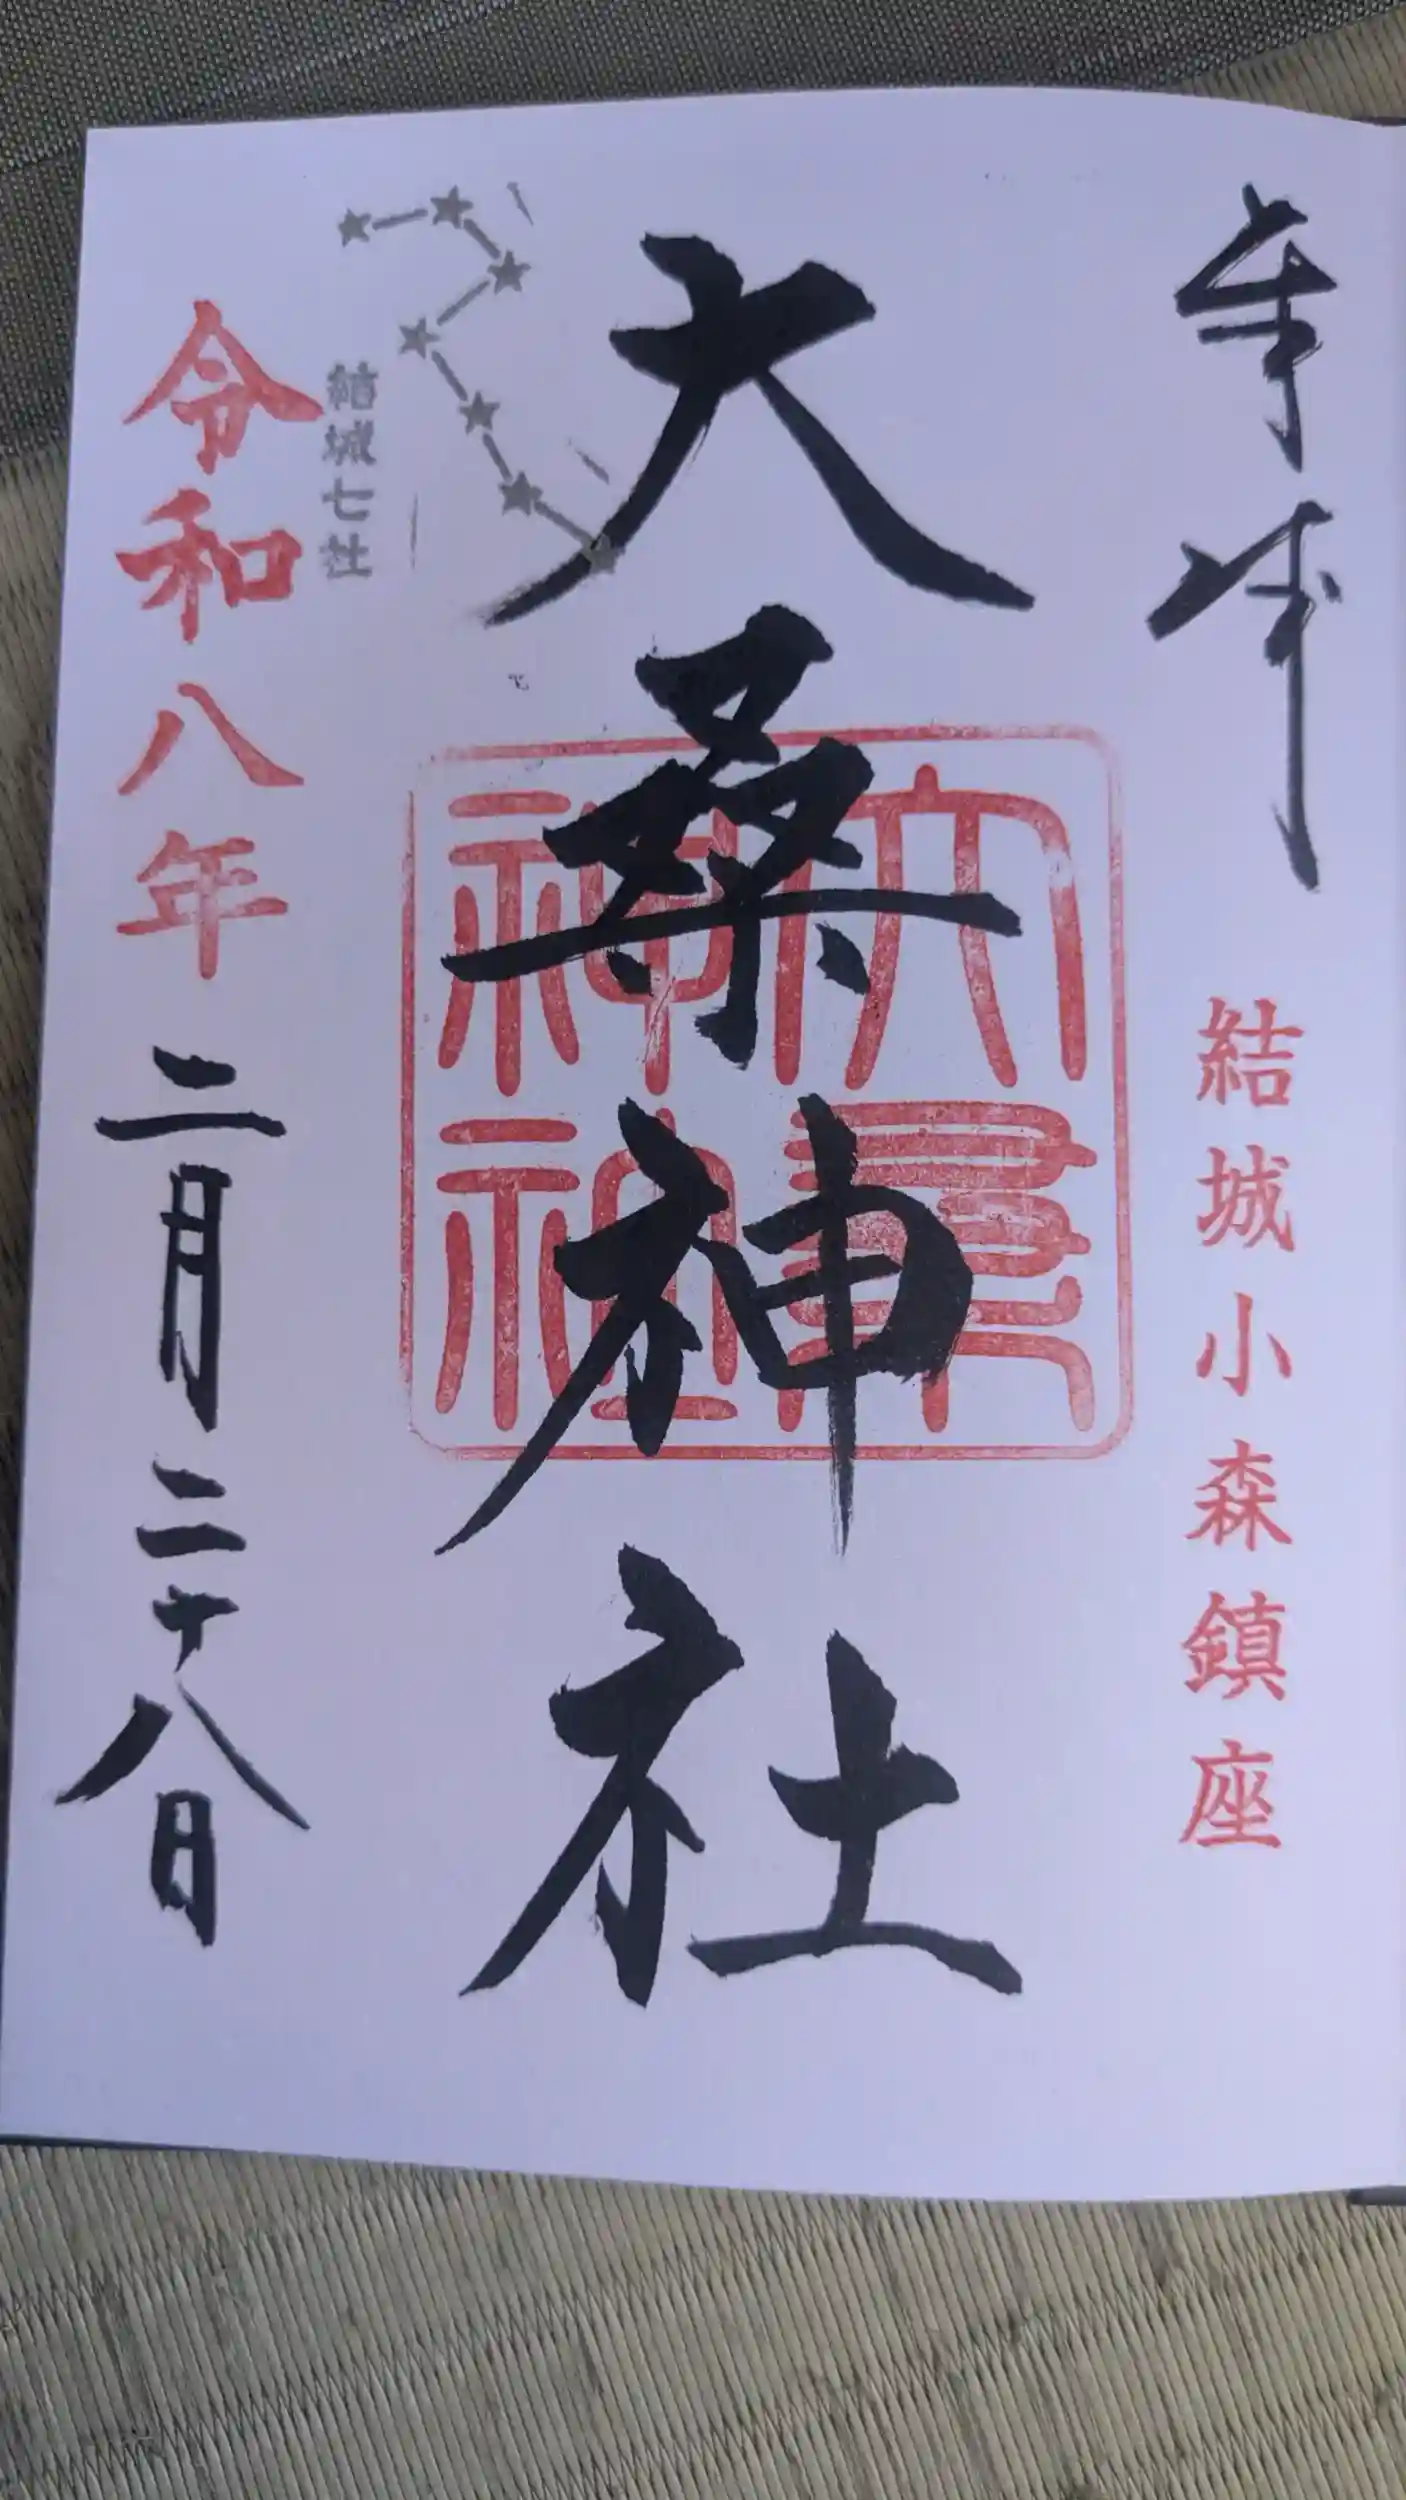 奉拝
結城小森鎮座
大桑神社
大桑神社
結城七社
令和八年二月二十八日